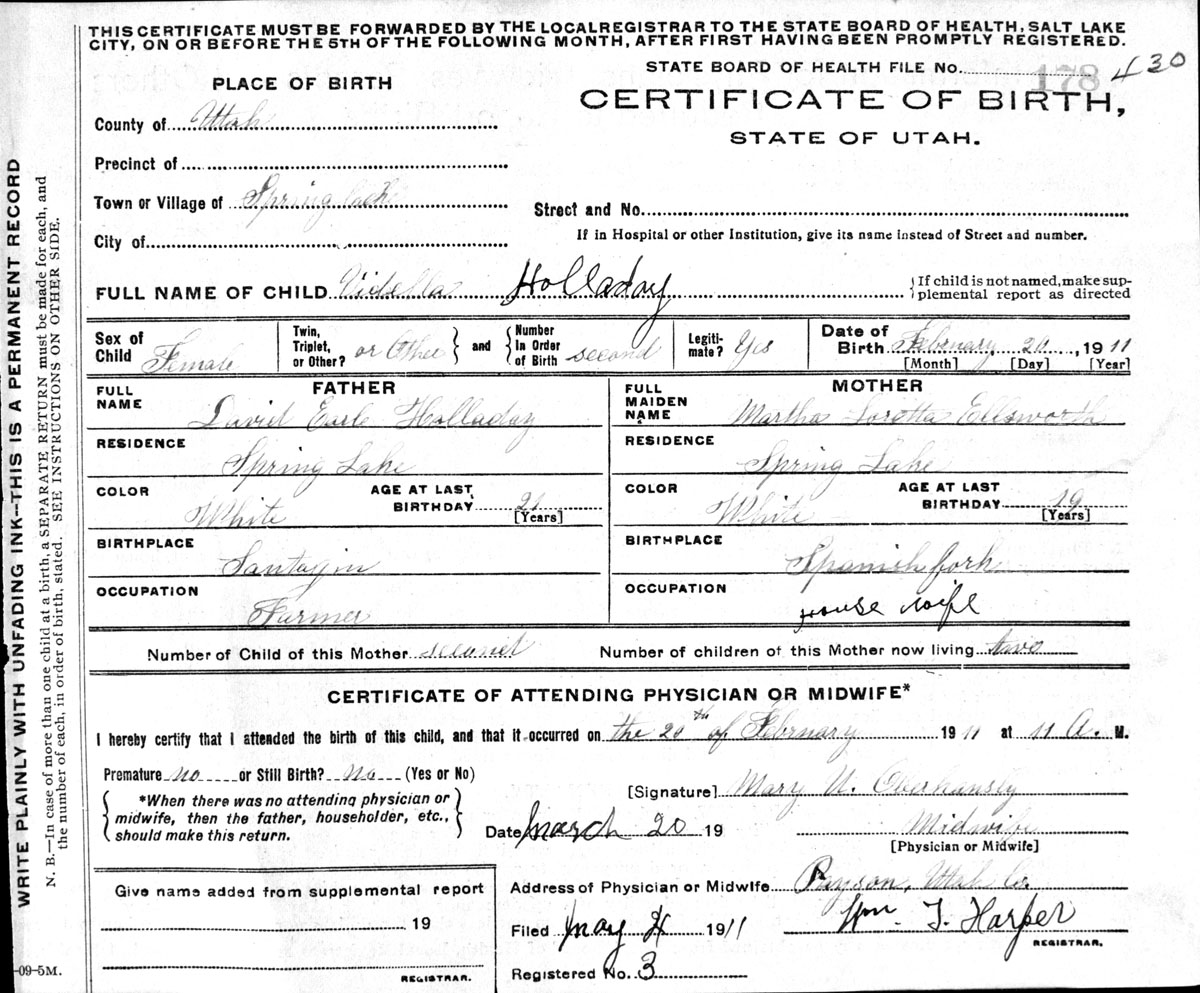 THIS CERTIFICATE MUST BE FORWARDED BY THE LOCALREGISTRAR TO THE STATE BOARD OF HEALTH, SALT LAKE
CITY, ON OR BEFORE THE 5TH OF THE FOLLOWING MONTH, AFTER FIRST HAVING BEEN PROMPTLY REGISTERED.
STATE BOARD OF HEALTH FILE NO. 178 430
PLACE OF BIRTH
CERTIFICATE OF BIRTH,
STATE OF UTAH.
County of Utah
Precinct of
Town or Village of Spring
Street and No.
City of
If in Hospital or other Institution, give its name instead of Street and number.
FULL NAME OF CHILD Vidella Holladay
If child is not named, make sup-
plemental report as directed
Sex of Child Female
Twin, Triplet, or Other? or Other and
Number In Order of Birth second
Legiti-mate? Yes
Date of Birth February 20, 1911
[Month] [Day] [Year]
FATHER
FULL NAME David Earle Holladay
RESIDENCE Spring Lake
COLOR White AGE AT LAST BIRTHDAY 21
[Years]
BIRTHPLACE Santaqin
OCCUPATION Farmer
MOTHER
FULL MAIDEN NAME Martha Loretta Ellsworth
RESIDENCE Spring Lake
COLOR White AGE AT LAST BIRTHDAY 19
[Years]
BIRTHPLACE Spanish fork
OCCUPATION House wife
Number of Child of this Mother second Number of children of this Mother now living two
CERTIFICATE OF ATTENDING PHYSICIAN OR MIDWIFE*
I hereby certify that I attended the birth of this child, and that it occurred on the 20th of February 1911 at 11 A. M.
Premature no or Still Birth? No (Yes or No)
*When there was no attending physician or
midwife, then the father, householder, etc.,
should make this return.
[Signature] Mary N. Oberhansly
Date March 20 19
Midwife
[Physician or Midwife]
Give name added from supplemental report
19
REGISTRAR.
Address of Physician or Midwife Payson, Utah Co.
Filed May 4 1911 Wm. T. Harper
REGISTRAR.
Registered No. 3
WRITE PLAINLY WITH UNFADING INK--THIS IS A PERMANENT RECORD
N. B.—In case of more than one child at a birth, a SEPARATE RETURN must be made for each, and
the number of each, in order of birth, stated. SEE INSTRUCTIONS ON OTHER SIDE.
-09-5M.